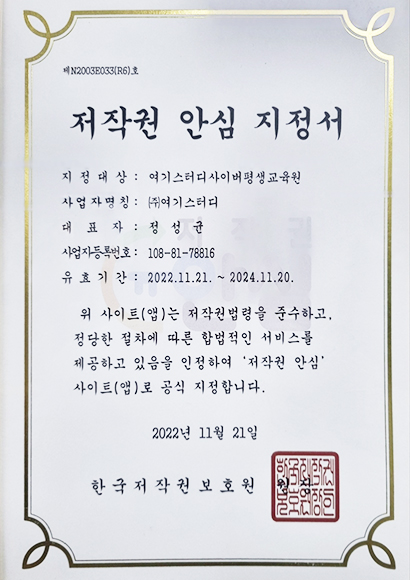 제N2003E033(R6)호
저작권 안심 지정서
지 정 대 상 : 여기스터디사이버평생교육원
사업자명칭 : ㈜여기스터디
대 표 자 : 정 성 균
사업자등록번호 : 108-81-78816
유 효 기 간 : 2022.11.21. ~ 2024.11.20.
위 사이트(앱)는 저작권법령을 준수하고,
정당한 절차에 따른 합법적인 서비스를
제공하고 있음을 인정하여 '저작권 안심'
사이트(앱)로 공식 지정합니다.
2022년 11월 21일
한국저작권보호원 원장